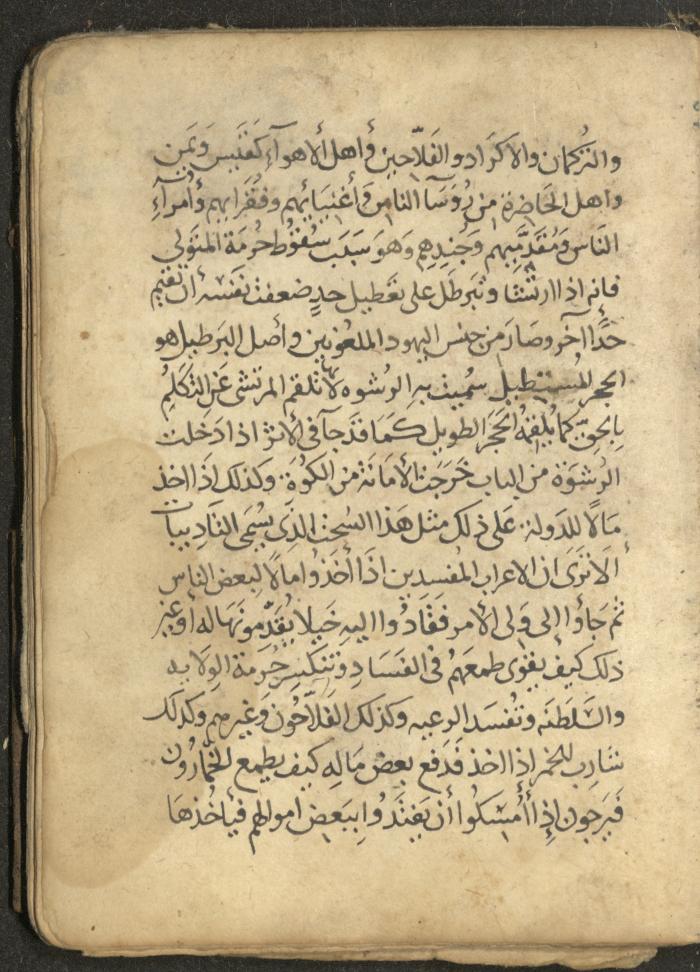 والتركمان والاكراد والفلاحين وأهل الاهواء كقيس ويمن
وأهل الحاضرة من رؤسآ الناس وأغنيائهم وفقرايهم وأمرآء
الناس ومقدميهم وجندهم وهو سبب سقوط حرمة المتولي
فانه اذا ارتشا وتبرطل على تعطيل حد ضعفت نفسه ان يقيم
حدا آخر وصار من جنس اليهود الملعونين وأصل البرطيل هو
الحجر المستطيل سميت به الرشوه لانها تلقم المرتشى عن التكلم
بالحق كما يلقمه الحجر الطويل كما قد جآ فى الاثر اذا دخلت
الرشوة من الباب خرجت الأمانة من الكوة وكذلك اذا اخذ
مالا للدولة على ذلك مثل هذا السحت الذى يسمى التاديبات
ألا ترى ان الاعراب المفسدين اذا أخذوا مالا لبعض الناس
ثم جاؤا إلى ولى الأمر فقادوا اليه خيلا يقدمونها له أو غير
ذلك كيف يقوى طمعهم فى الفساد وتنكسر حرمة الولايه
والسلطنه وتفسد الرعيه وكذلك الفلاحون وغيرهم وكذلك
شارب الخمر اذا اخذ فدفع بعض ماله كيف يطمع الخمارون
فيرجون إذا أمسكوا أن يفتدوا ببعض اموالهم فيأخذها